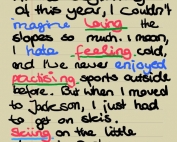 of this year, I couldn't
imagine loving the
slopes so much. I mean,
I hate feeling cold,
and I've never enjoyed
practising sports outside
before. But when I moved
to Jackson, I just had
to get on skis.
Skiing on the little